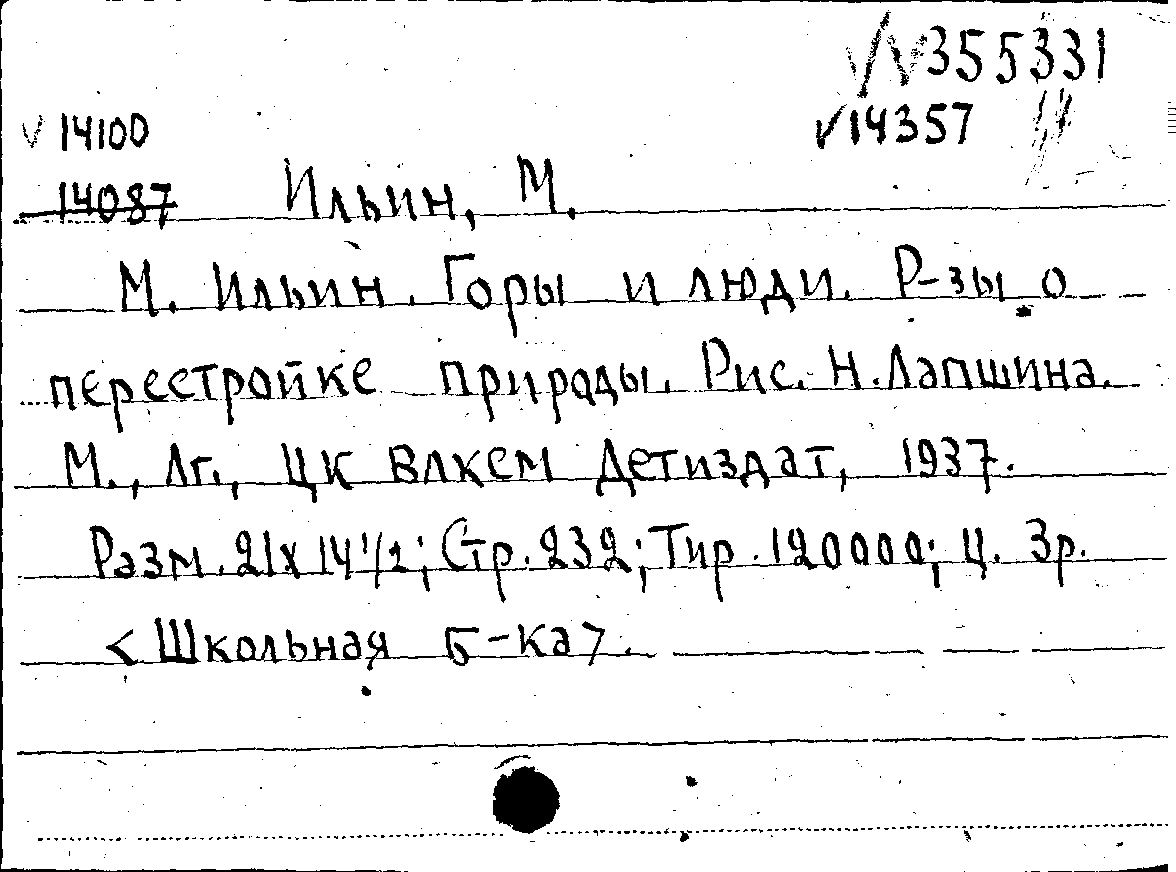 √355331
√14100
√14357
14087 Ильин, М.
М. Ильин. Горы и люди. Р-зы о
перестройке природы. Рис. Н. Лапшина.
М., Лг., ЦК ВЛКСМ Детиздат, 1937.
Разм. 21x14 1/2; Стр. 232; Тир. 120000; Ц. 3р.
<Школьная б-ка>.